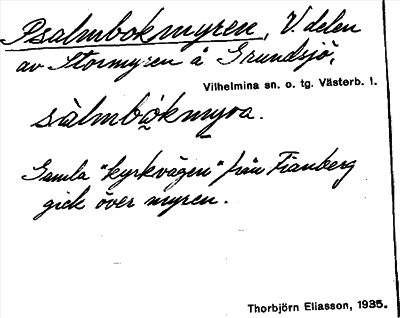 Psalmbokmyren, V. delen
av Stormyren å Grundsjö,
Vilhelmina sn. o. tg. Västerb. l.
sàlmbo̭kmyra.
Gamla "kyrkvägen" från Tianberg
gick över myren.
Thorbjörn Eliasson, 1935.